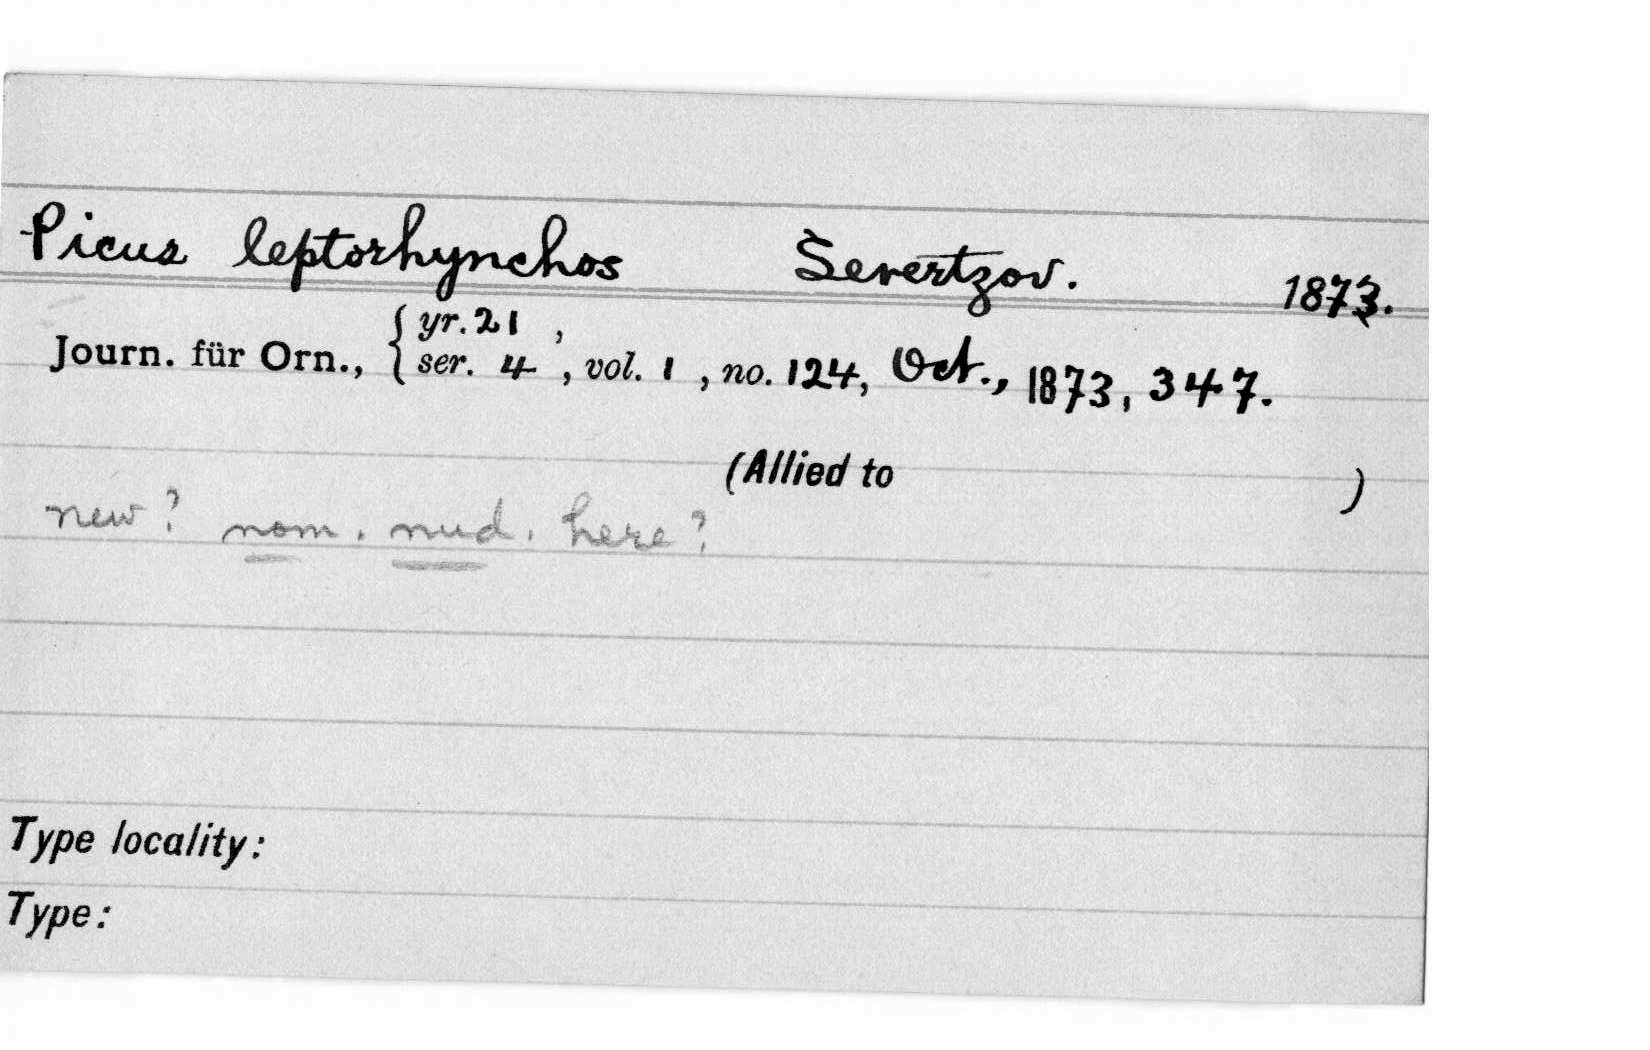 Picus leptorhynchos Severtzov. 1873.
Journ. für Orn., { yr. 21 ,
ser. 4 , vol. 1 , no. 124, Oct., 1873, 347.
(Allied to )
new? nom. nud. here?
Type locality:
Type: